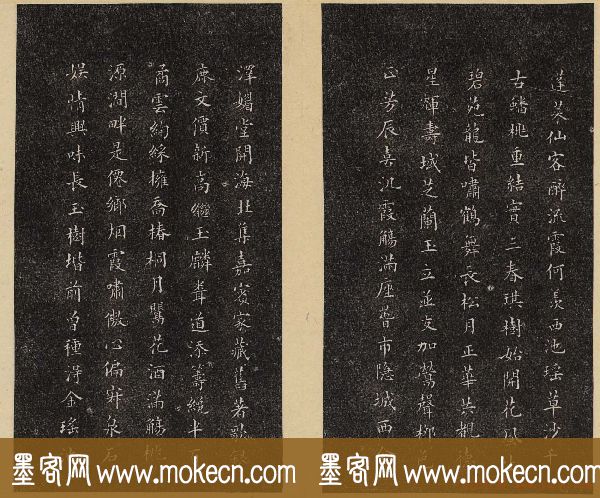 蓬莱仙客醉流霞何羡西池瑶草沙千
古蟠桃重结實三春琪樹始開花
碧苑龍皆嘯鶴舞長松月正華共觀
星輝壽域芝蘭玉立並支加鶯聲柳
正芳辰喜沉霞觴滿座皆市隱城西
澤媚堂開海上集嘉賓家藏舊著
康文價新高繼玉麟聲道添籌纔半百
喬雲絢綵擁喬椿桐月鶯花酒滿觴桃
源澗畔是僊鄉烟霞嘯傲心偏
娱情興味長玉樹堦前曾種得金
墨客网 www.mokecn.com
墨客网 www.mokecn.com